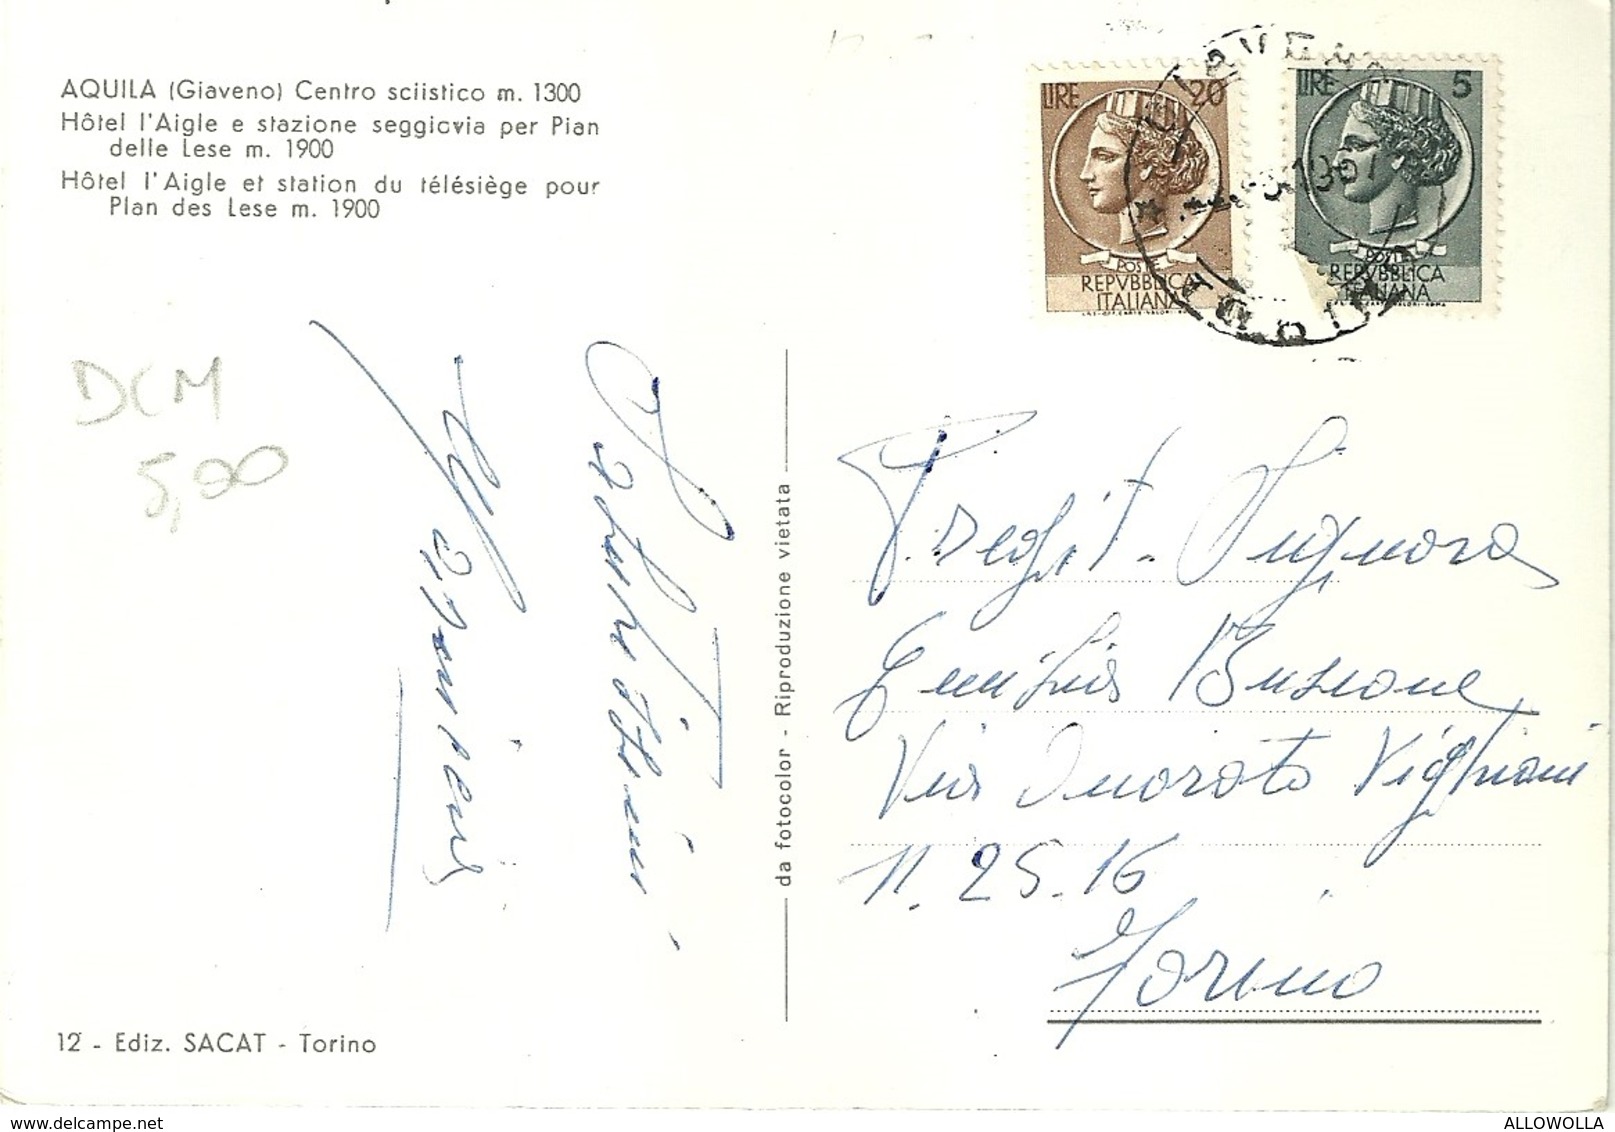 AQUILA (Giaveno) Centro sciistico m. 1300
Hôtel l'Aigle e stazione seggiovia per Pian
delle Lese m. 1900
Hôtel l'Aigle et station du télésiège pour
Plan des Lese m. 1900
DCM
5,00
LIRE 20
REPVBBLICA
ITALIANA
LIRE 5
POSTE
REPVBBLICA
ITALIANA
TORINO
da fotocolor - Riproduzione vietata
Signora
Emilia Bussone
Via Onorato Vigliani
N. 25.16
Torino
12 - Ediz. SACAT - Torino
delcampe.net
ALLOWOLLA